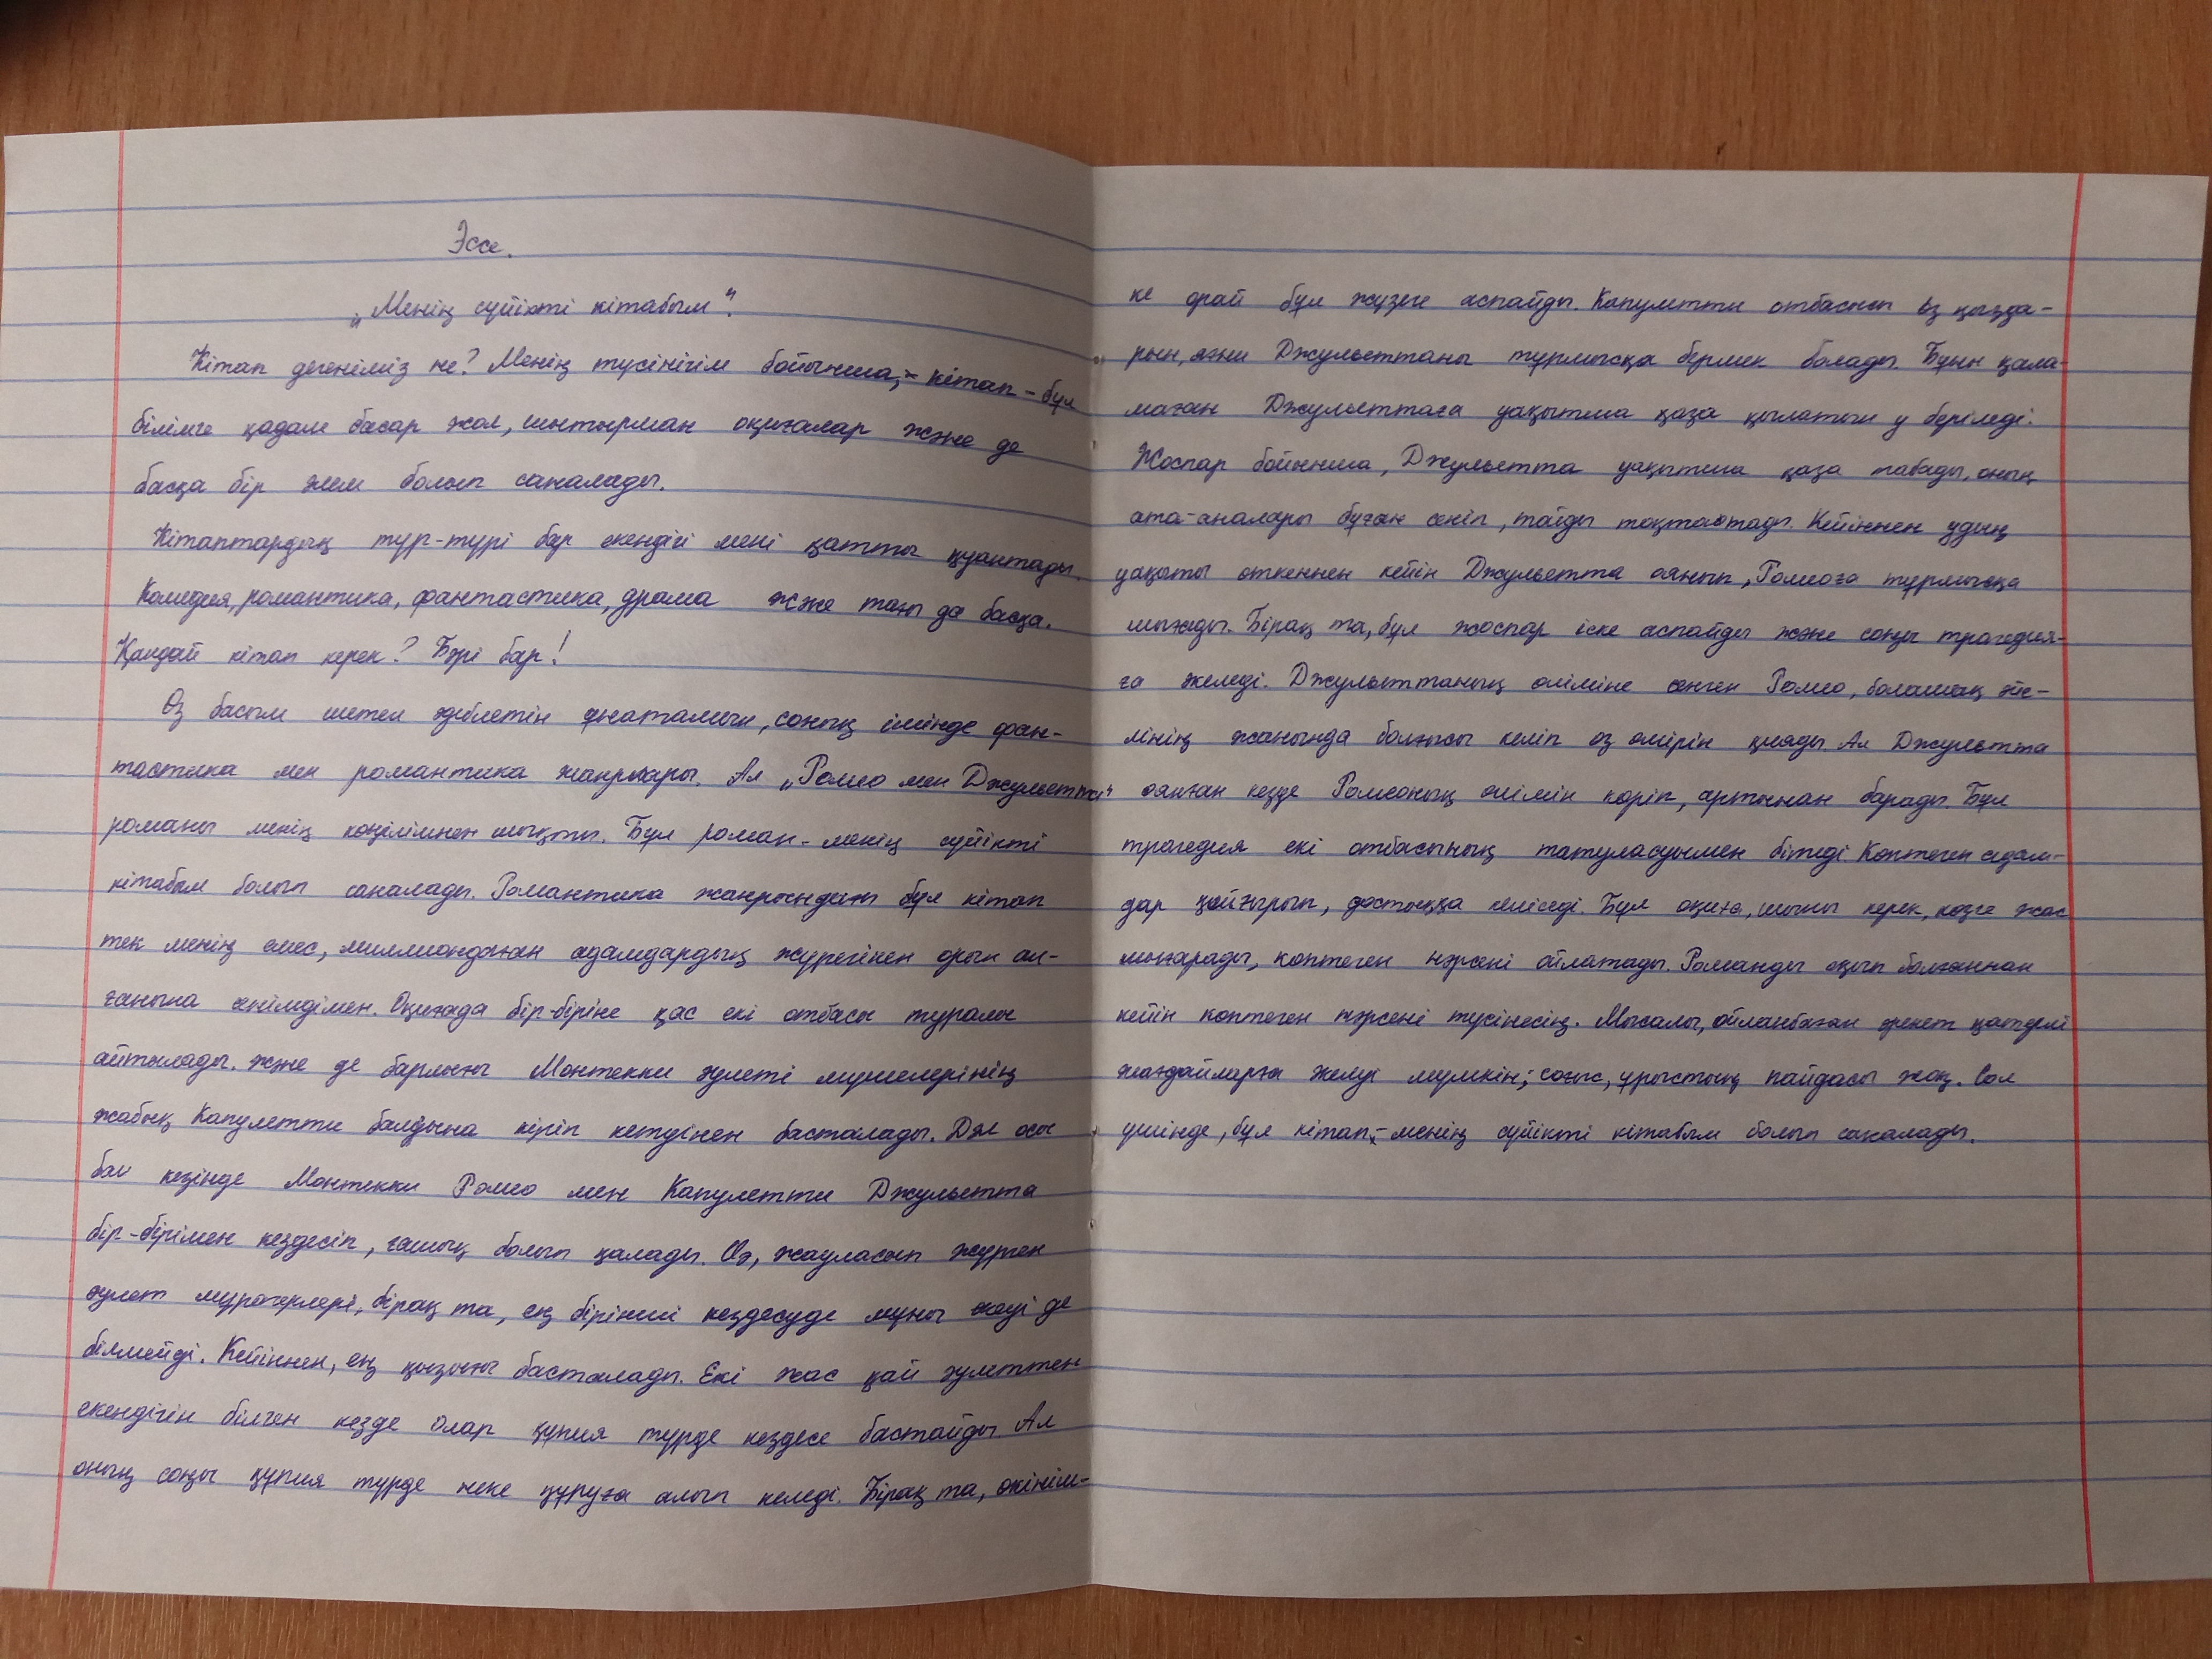 Эссе.
„Менің сүйікті кітабым".
Кітап дегеніміз не? Менің түсінігім бойынша, - кітап - бұл
білімге қадам басар жол, шытырман оқиғалар және де
басқа бір әлем болып саналады.
Кітаптардың түр-түрі бар екендігі мені қатты қуантады.
Комедия, романтика, фантастика, драма және тағы да басқа.
Қандай кітап керек? Бәрі бар!
Өз басым шетел әдебиетін ұнатамын, соның ішінде фан-
тастика мен романтика жанрлары. Ал „Ромео мен Джульетта"
романы менің көңілімнен шықты. Бұл роман - менің сүйікті
кітабым болып саналады. Романтика жанрындағы бұл кітап
тек менің емес, миллиондаған адамдардың жүрегінен орын ал-
ғанына сенімдімен. Оқиғада бір-біріне қас екі отбасы туралы
айтылады. және де барлығы Монтекки әулеті мүшелерінің
жабық Капулетти балдына кіріп кетуінен басталады. Дәл осы
бал кезінде Монтекки Ромео мен Капулетти Джульетта
бір-бірімен кездесіп, ғашық болып қалады. Иә, жауласып жүрген
әулет мұрагерлері, бірақ та, ең бірінші кездесуде мұны екеуі де
білмейді. Кейіннен, ең қызығы басталады. Екі жас қай әулеттен
екендігін білген кезде олар құпия түрде кездесе бастайды. Ал
оның соңы құпия түрде неке құруға алып келеді. Бірақ та, өкініш-
ке орай бұл жүзеге аспайды. Капулетти отбасысы өз қызда-
рын, яғни Джульеттаны тұрмысқа бермек болады. Бұны қала-
маған Джульеттаға уақытша қаза қылатын у беріледі.
Жоспар бойынша, Джульетта уақытша қаза табады, оның
ата-аналары бұған сеніп, тойды тоқтатады. Кейіннен удың
уақыты өткеннен кейін Джульетта оянып, Ромеоға тұрмысқа
шығады. Бірақ та, бұл жоспар іске аспайды және соңы трагедия-
ға әкеледі. Джульеттаның өліміне сенген Ромео, болашақ әйе-
лінің жанында болғысы келіп өз өмірін қияды. Ал Джульетта
оянған кезде Ромеоның өлімін көріп, артынан барады. Бұл
трагедия екі отбасының татуласуымен бітеді. Көптеген адам-
дар қайғырып, достыққа келіседі. Бұл оқиға, шыны керек, көзге жас
шығарады, көптеген нәрсені ойлатады. Романды оқып болғаннан
кейін көптеген нәрсені түсінесің. Мысалы, ойланбаған әрекет қатерлі
жағдайларға әкелуі мүмкін; соғыс, ұрыстың пайдасы жоқ. Сол
үшінде, бұл кітап, - менің сүйікті кітабым болып саналады.